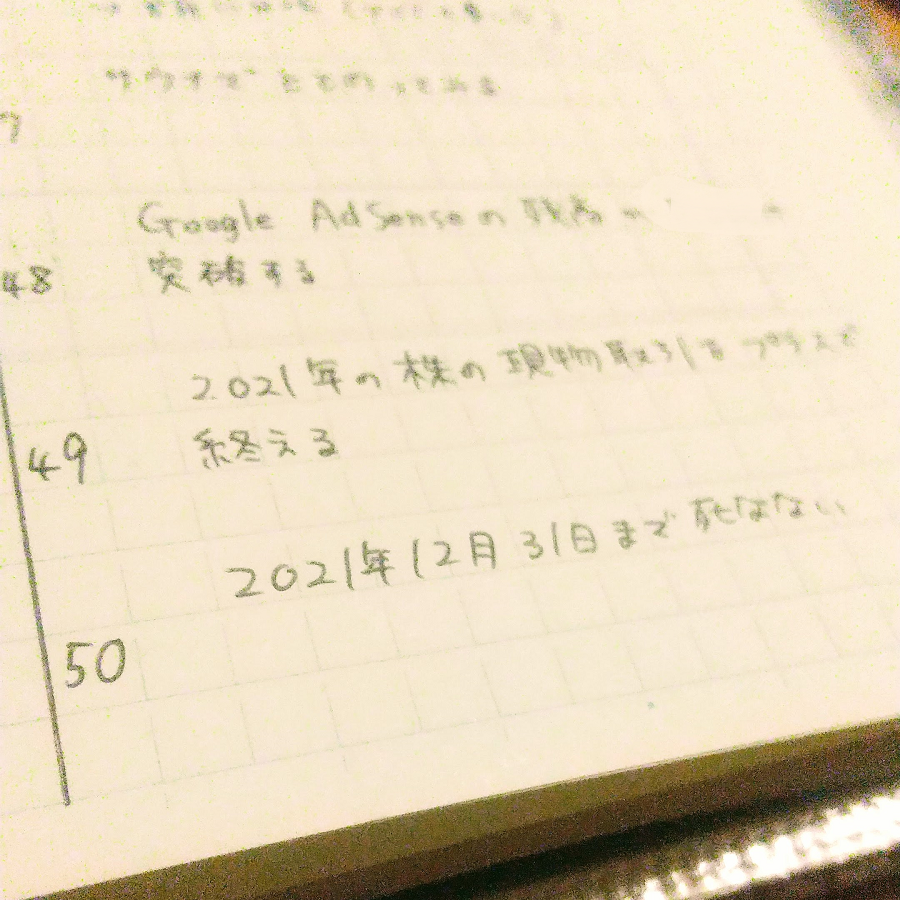 サウナで ととのってみる
7
Google AdSenseの残高が
48 突破する
2021年の株の現物取引をプラスで
49 終える
2021年12月31日まで死なない
50